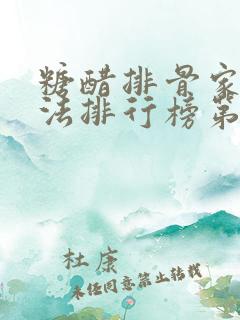 糖醋排骨家
法排行榜第
杜康
未经同意禁止转载